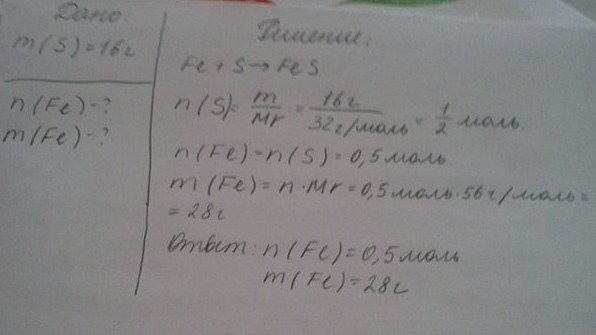 Дано:
m(S)=16г
n(Fe)-?
m(Fe)-?
Решение:
Fe+S→FeS
n(S)=m/Mr=16г/32г/моль=1/2 моль.
n(Fe)=n(S)=0,5моль.
m(Fe)=n·Mr=0,5моль·56г/моль=
=28г
Ответ: n(Fe)=0,5моль
m(Fe)=28г